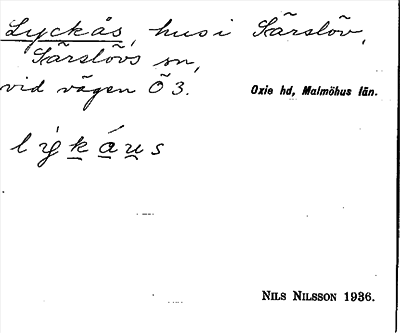 Lyckås, hus i Särslöv,
Särslövs sn,
vid vägen Ö 3.
Oxie hd, Malmöhus län.
lýkáus
NILS NILSSON 1936.